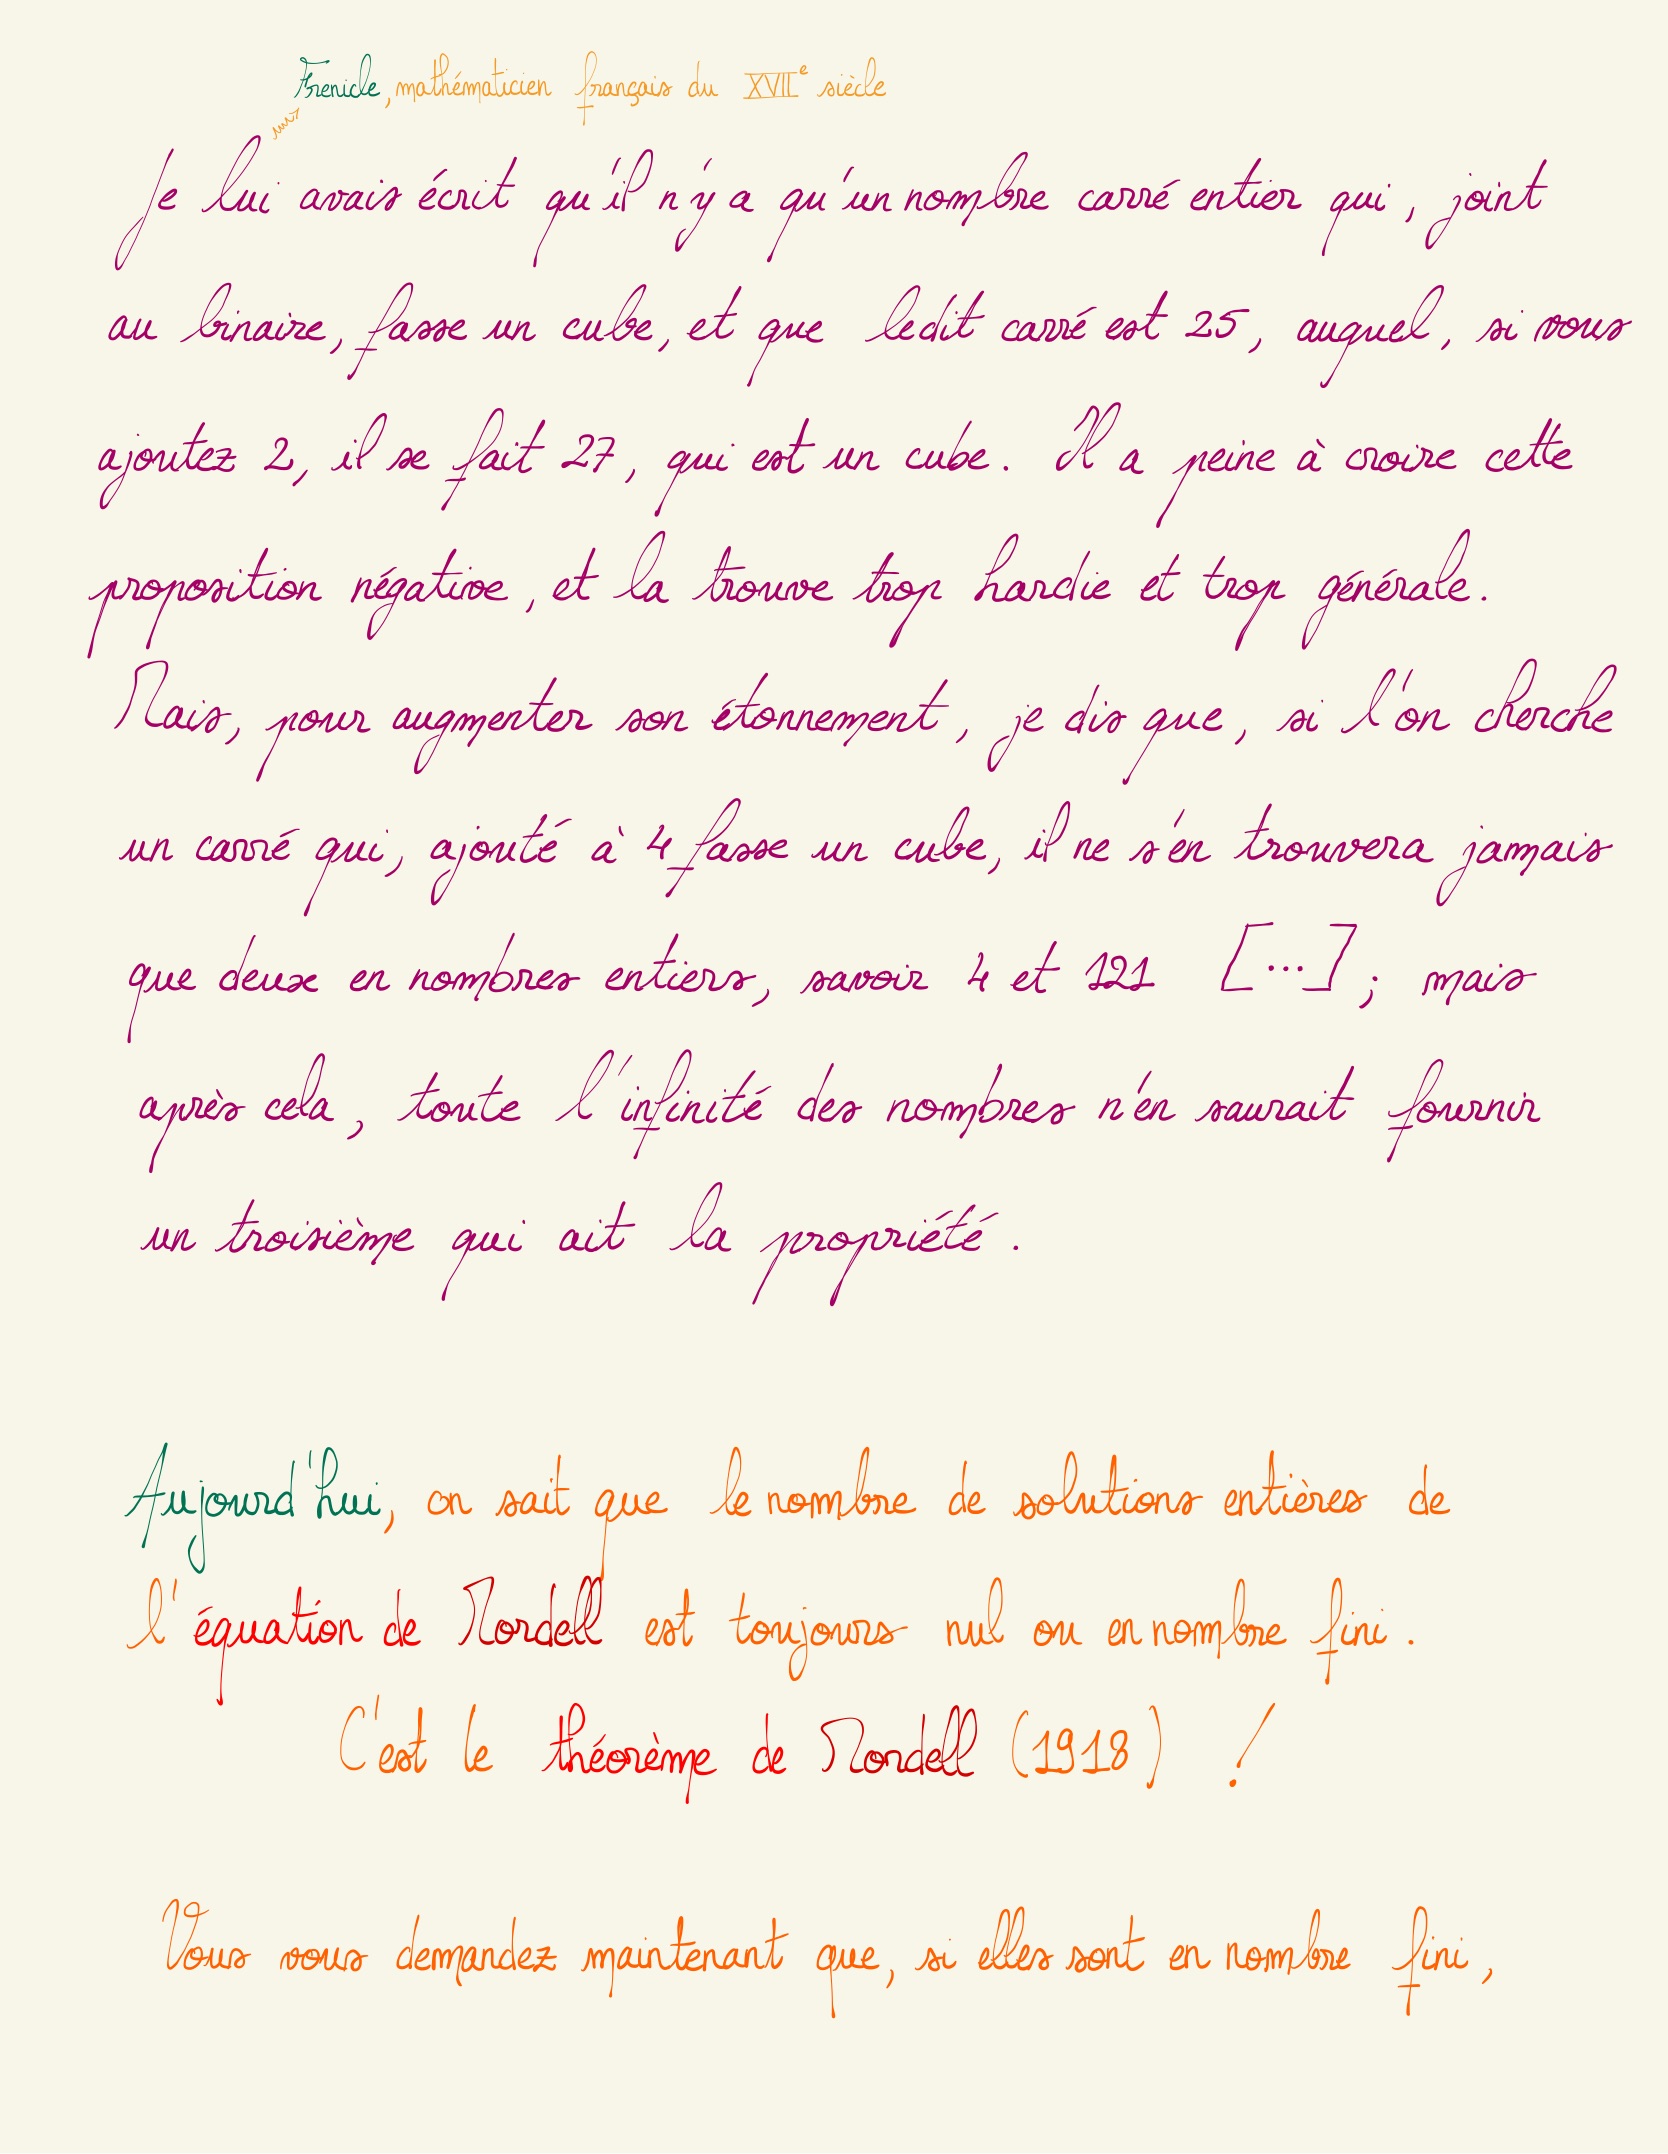 Frenicle, mathématicien français du XVIIe siècle
Je lui avais écrit qu'il n'y a qu'un nombre carré entier qui, joint
au binaire, fasse un cube, et que ledit carré est 25, auquel, si vous
ajoutez 2, il se fait 27, qui est un cube. Il a peine à croire cette
proposition négative, et la trouve trop hardie et trop générale.
Mais, pour augmenter son étonnement, je dis que, si l'on cherche
un carré qui, ajouté à 4 fasse un cube, il ne s'en trouvera jamais
que deux en nombres entiers, savoir 4 et 121 [...]; mais
après cela, toute l'infinité des nombres n'en saurait fournir
un troisième qui ait la propriété.
Aujourd'hui, on sait que le nombre de solutions entières de
l'équation de Mordell est toujours nul ou en nombre fini.
C'est le théorème de Mordell (1918) !
Vous vous demandez maintenant que, si elles sont en nombre fini,